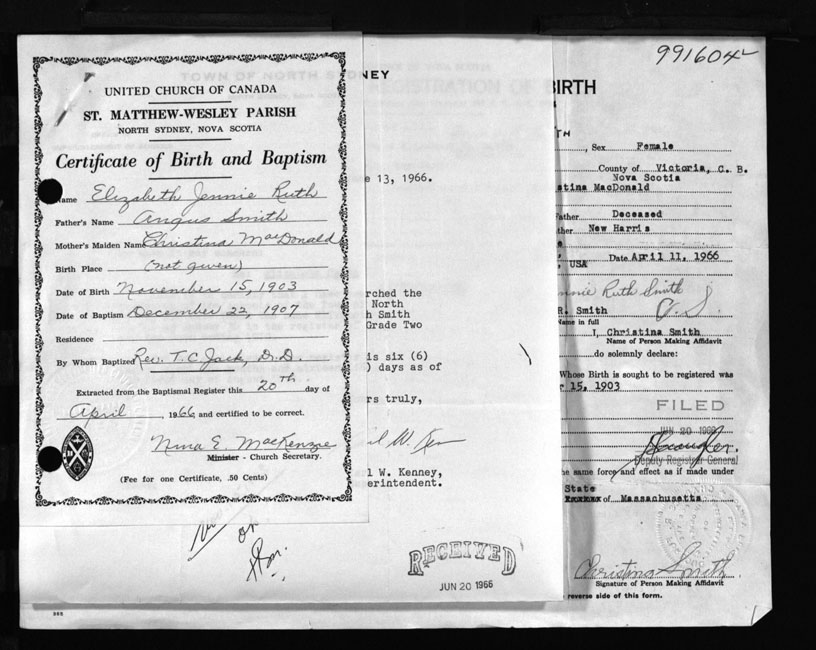 UNITED CHURCH OF CANADA
ST. MATTHEW-WESLEY PARISH
NORTH SYDNEY, NOVA SCOTIA
Certificate of Birth and Baptism
Name Elizabeth Jennie Ruth
Father's Name Angus Smith
Mother's Maiden Name Christina MacDonald
Birth Place (not given)
Date of Birth November 15, 1903
Date of Baptism December 22, 1907
Residence
By Whom Baptized Rev. T. C. Jack, D. D.
Extracted from the Baptismal Register this 20th day of
April, 1966, and certified to be correct.
Nina E. MacKenzie
Minister - Church Secretary.
(Fee for one Certificate, .50 Cents)
NEY
e 13, 1966.
rched the
North
h Smith
Grade Two
is six (6)
) days as of
rs truly,
l W. Kenney,
erintendent.
or
RECEIVED
JUN 20 1966
991604
REGISTRATION OF BIRTH
TH
, Sex Female
County of Victoria, C. B.
Nova Scotia
stina MacDonald
Father Deceased
ther New Harris
e
, USA Date April 11, 1966
nnie Ruth Smith
R. Smith
Name in full
I, Christina Smith
Name of Person Making Affidavit
do solemnly declare:
Whose Birth is sought to be registered was
r 15, 1903
FILED
JUN 20 1966
Deputy Registrar General
he same force and effect as if made under
State
of Massachusetts
Christina Smith
Signature of Person Making Affidavit
reverse side of this form.